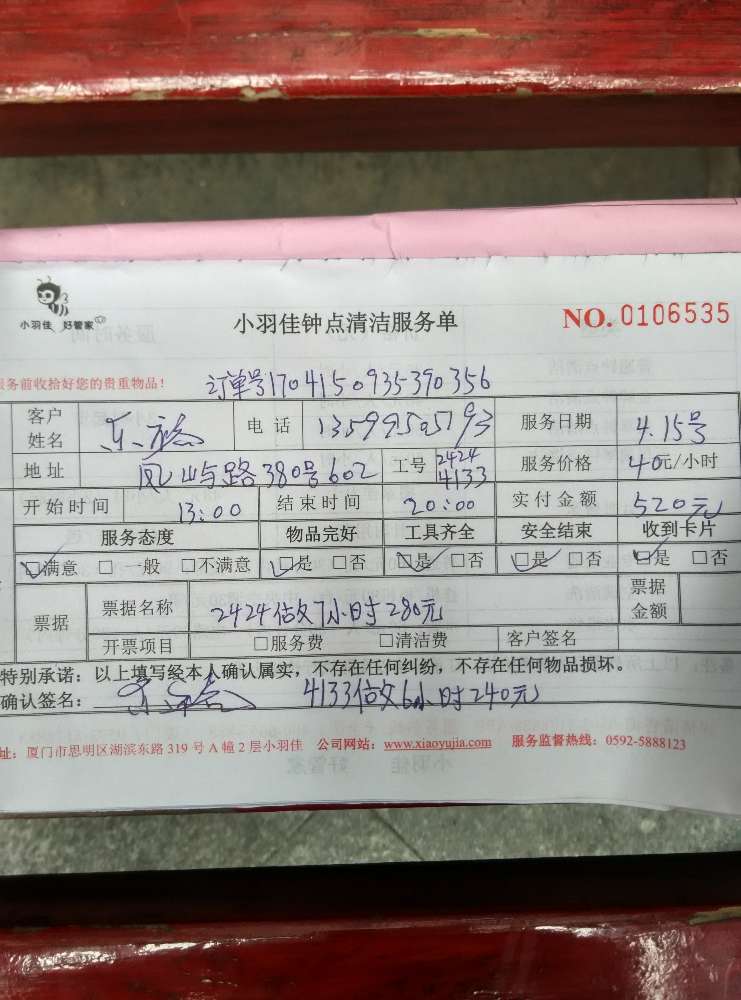 小羽佳 好管家
小羽佳钟点清洁服务单
NO. 0106535
服务前收拾好您的贵重物品!
订单号170415093539035​6
客户姓名
电话 13599505193
服务日期 4.15号
地址 凤屿路380号602
工号 2424 4133
服务价格 40元/小时
开始时间 13:00
结束时间 20:00
实付金额 520元
服务态度 物品完好 工具齐全 安全结束 收到卡片
☑满意 □一般 □不满意 ☑是 □否 ☑是 □否 ☑是 □否 ☑是 □否
票据 票据名称 2424做7小时280元 票据金额
开票项目 □服务费 □清洁费 客户签名
特别承诺：以上填写经本人确认属实，不存在任何纠纷，不存在任何物品损坏。
确认签名： 4133做6小时240元
址：厦门市思明区湖滨东路 319 号 A 幢 2 层小羽佳 公司网站：www.xiaoyujia.com 服务监督热线：0592-5888123